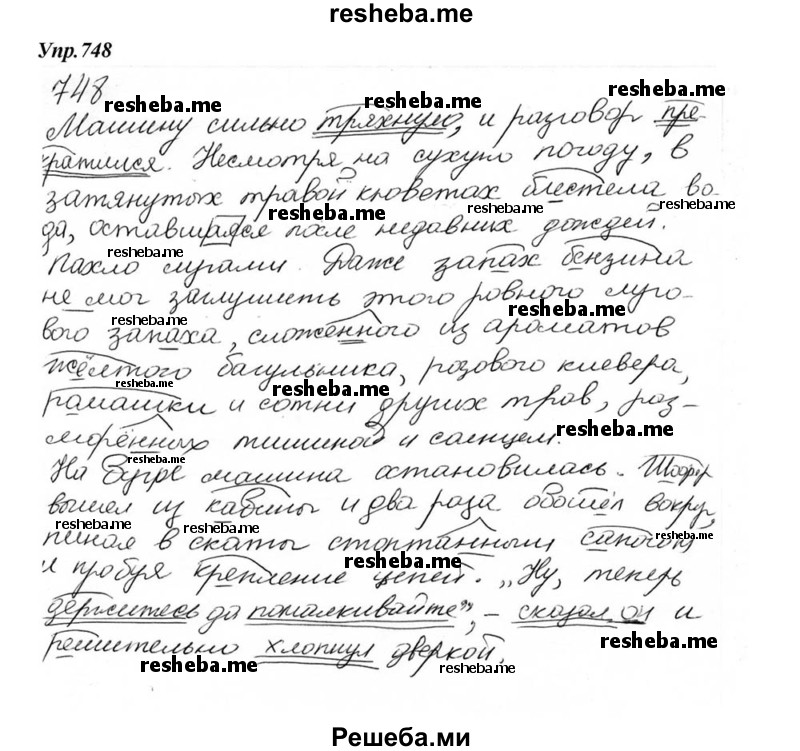 resheba.me
Упр.748
748
resheba.me
resheba.me
resheba.me
Машину сильно тряхнуло, и разговор пре-
кратился. Несмотря на сухую погоду, в
затянутых травой кюветах блестела во-
resheba.me
resheba.me
resheba.me
да, оставшаяся после недавних дождей.
resheba.me
Пахло лугами. Даже запах бензина
не мог заглушить этого ровного луго-
resheba.me
resheba.me
вого запаха, сложенного из ароматов
жёлтого багульника, розового клевера,
resheba.me
resheba.me
ромашки и сотни других трав, раз-
морённых тишиной и солнцем.
resheba.me
На бугре машина остановилась. Шофёр
вышел из кабины и два раза обошёл вокруг,
resheba.me
resheba.me
resheba.me
пиная в скаты стоптанными сапогом
и пробуя крепление цепей. „Ну, теперь
resheba.me
держитесь да помалкивайте", – сказал он и
решительно хлопнул дверкой.
resheba.me
resheba.me
resheba.me
Решеба.ми